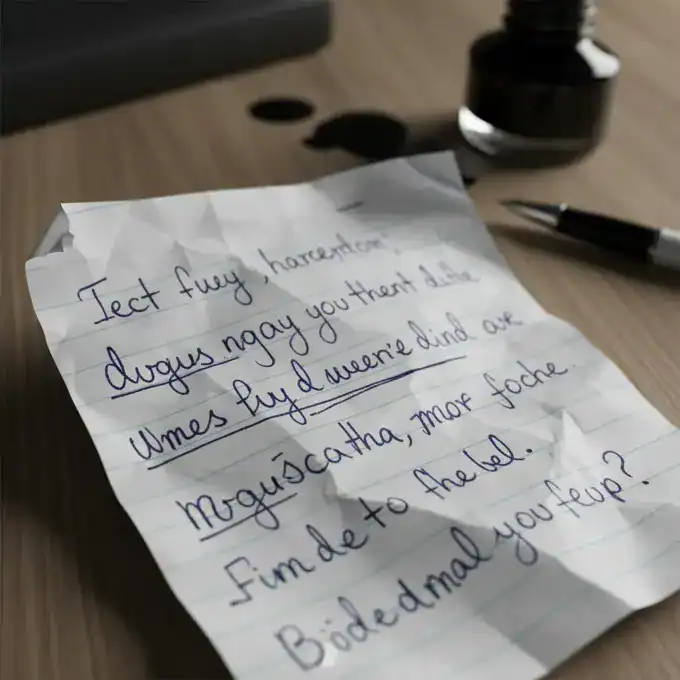 Tect fuey, harcerdom;
dvogus ngay you thent dutle
wmes fuyd weerie dind are
moguscatha, mor foche.
Fim de to fhebel.
Bödedmal you feup?.